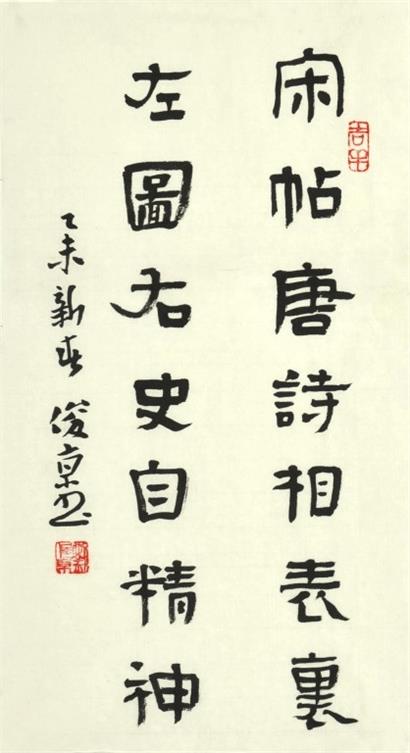 宋帖唐詩相表裏
左圖右史自精神
乙未新春 俊京书